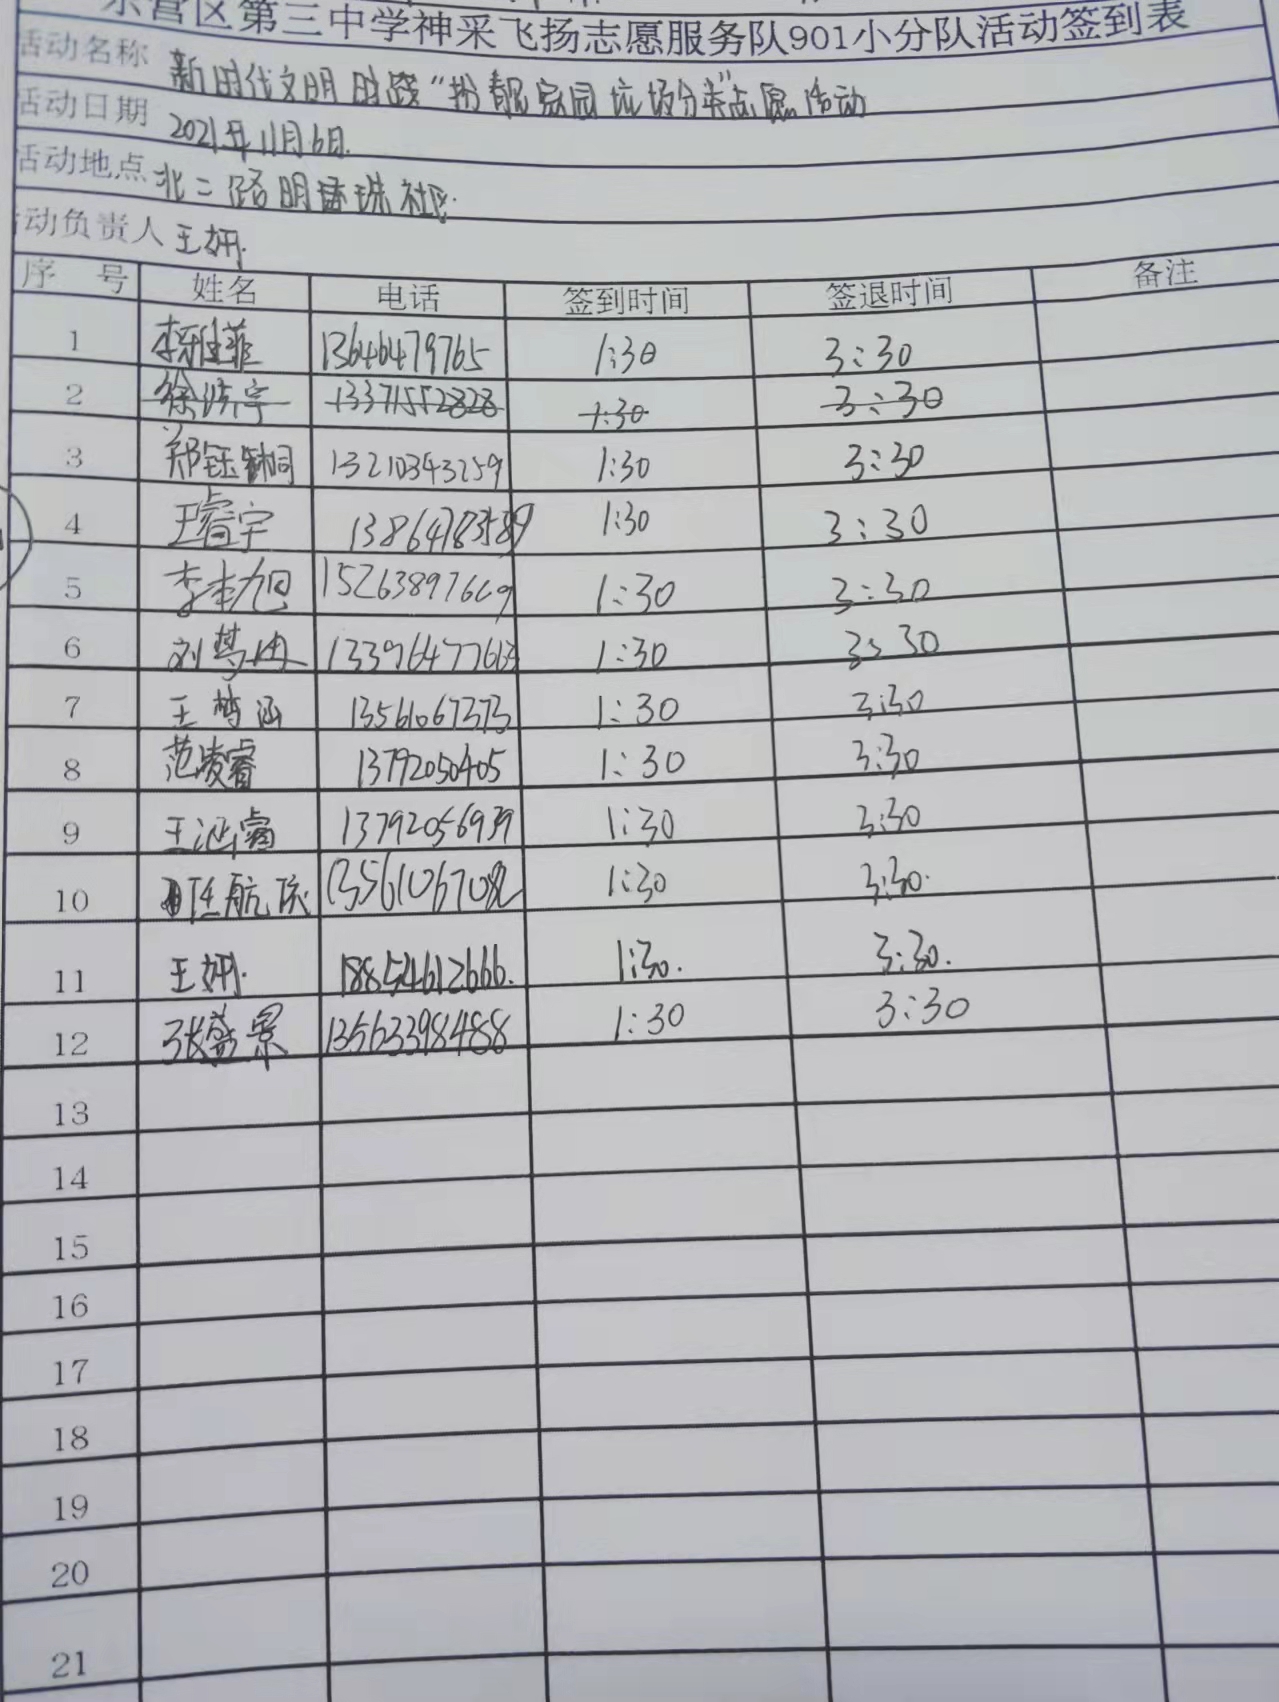 东营区第三中学神采飞扬志愿服务队901小分队活动签到表
活动名称 新时代文明实践“扮靓家园 垃圾分类”志愿活动
活动日期 2021年11月6日.
活动地点 北二路明珠社区.
活动负责人 王妍.
序 号 姓名 电话 签到时间 签退时间 备注
1 李雅菲 13646479765 1:30 3:30
2 13371552828 1:30 3:30
3 郑钰桐 13210343259 1:30 3:30
4 王睿宇 13864783589 1:30 3:30
5 李本旭 15263897669 1:30 3:30
6 1:30 3:30
7 王梦涵 13561067373 1:30 3:30
8 范凌睿 13792050405 1:30 3:30
9 王泓睿 13792056939 1:30 3:30
10 1:30 3:30.
11 王妍. 18854612666. 1:30. 3:30.
12 张蕴景 13563398488 1:30 3:30
13
14
15
16
17
18
19
20
21